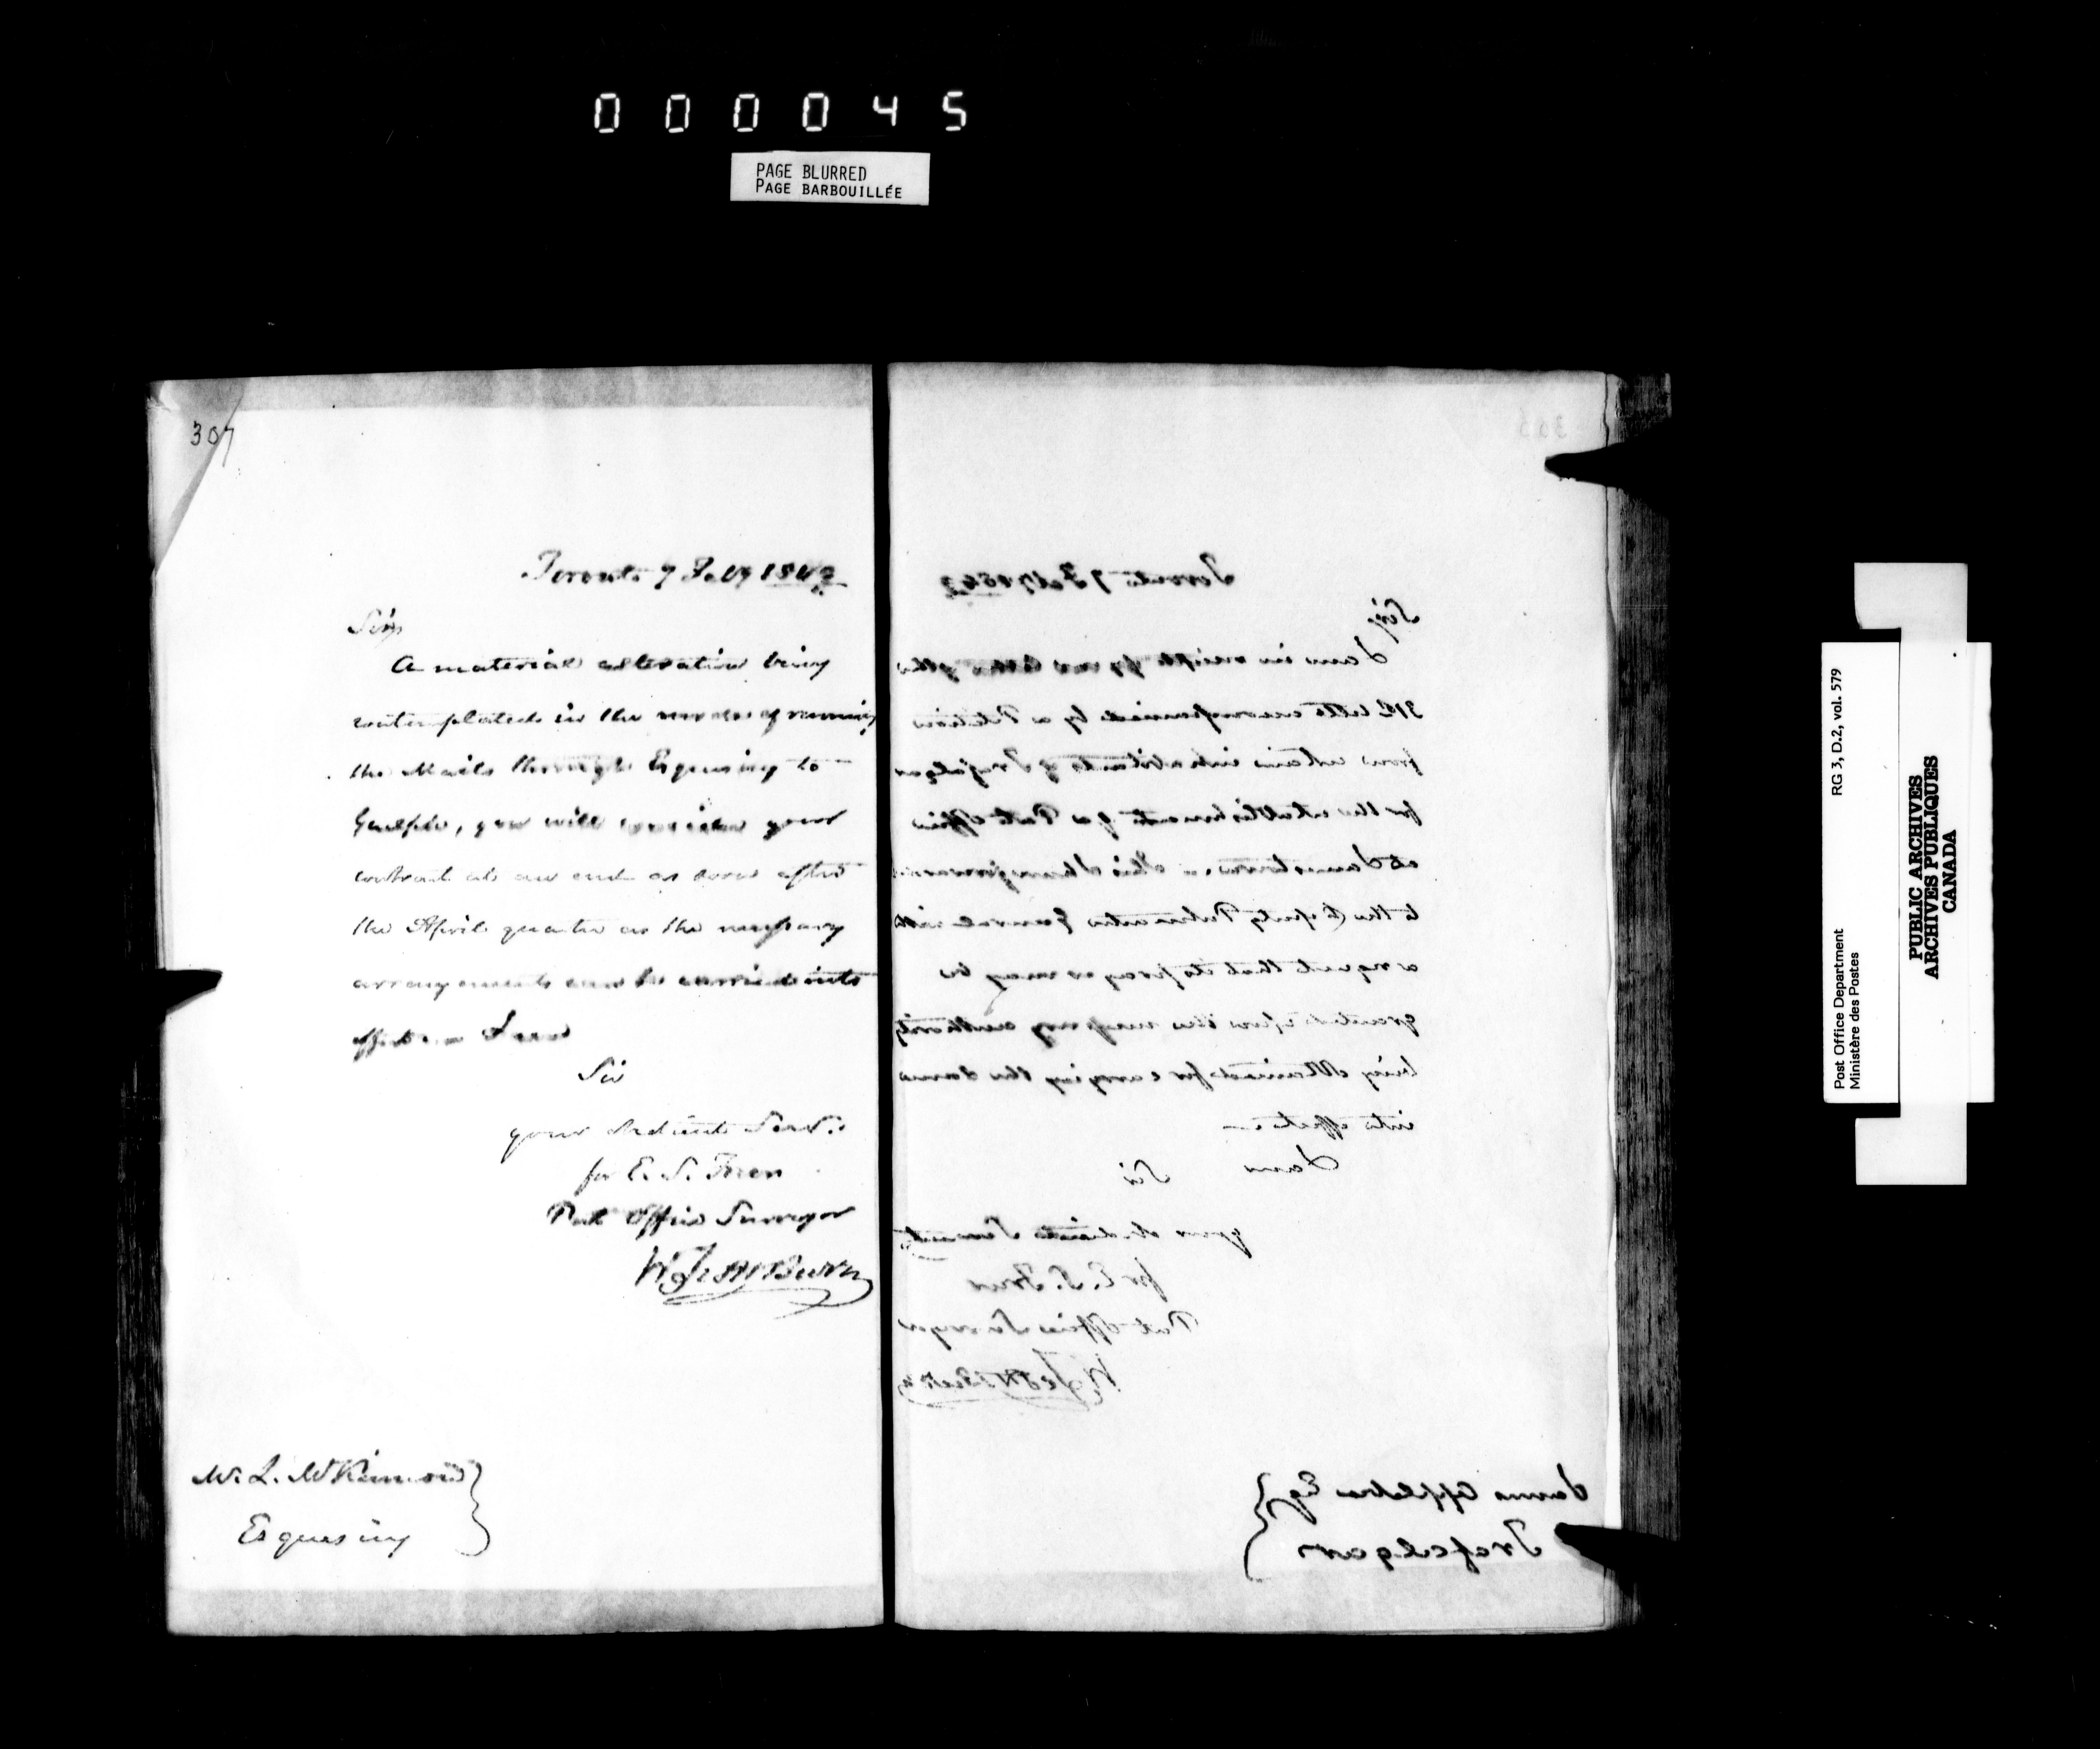 000045
PAGE BLURRED
PAGE BARBOUILLÉE
307
Toronto 7 Feby 1842
Sir,
A material alteration being
contemplated in the modes of running
the Mails through Esquesing to
Guelph, you will consider your
contract at an end as soon after
the April quarter as the necessary
arrangements can be carried into
effect I am
Sir
your obedient Servt.
for E. S. Freer
Post Office Surveyor
Mr. L. McKinnon
Esquesing
Toronto 7 Feby 1842
Sir,
I am in receipt of your letter of the
31st Ulto accompanied by a Petition
from certain inhabitants of Trafalgar
for the establishment of a Post Office
at Jamestown. This I have forwarded
to the Deputy Postmaster General with
a request that its prayer may be
granted upon the necessary authority
being obtained for carrying the same
into effect
I am
Sir
your obedient Servant
for E. S. Freer
Post Office Surveyor
James Appleton Esq
Trafalgar
Post Office Department
Ministère des Postes
RG 3, D.2, vol. 579
PUBLIC ARCHIVES
ARCHIVES PUBLIQUES
CANADA